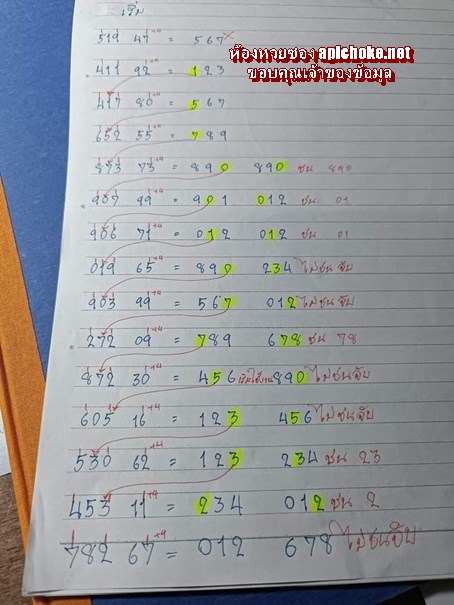 เริ่ม
519 47 = 567 ×
ห้องหวยซอง apichoke.net
ขอบคุณเจ้าของข้อมูล
411 92 +4 = 123
417 80 +4 = 567
652 55 +4 = 789
873 73 +4 = 890 890 ชน 890
907 99 +4 = 901 012 ชน 01
906 71 +4 = 012 012 ชน 01
019 65 +4 = 890 234 ไม่ชนจับ
903 99 +4 = 567 012 ไม่ชนจับ
272 09 +4 = 789 678 ชน 78
872 30 +4 = 456 เริ่มใช้งาน 890 ไม่ชนจับ
605 16 +4 = 123 456 ไม่ชนจับ
530 62 +4 = 123 234 ชน 23
453 11 +4 = 234 012 ชน 2
782 67 +4 = 012 678 ไม่ชนจับ